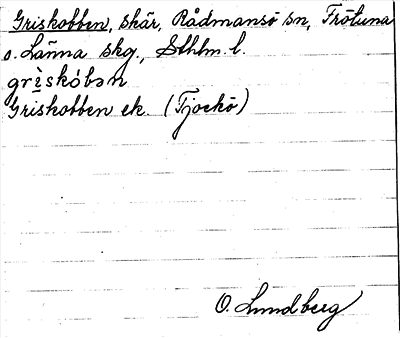 Griskobben, skär, Rådmansö sn, Frötuna
o. Länna skg., Sthlm. l.
grìskóbən
Griskobben ek. (Tjockö)
O. Lundberg